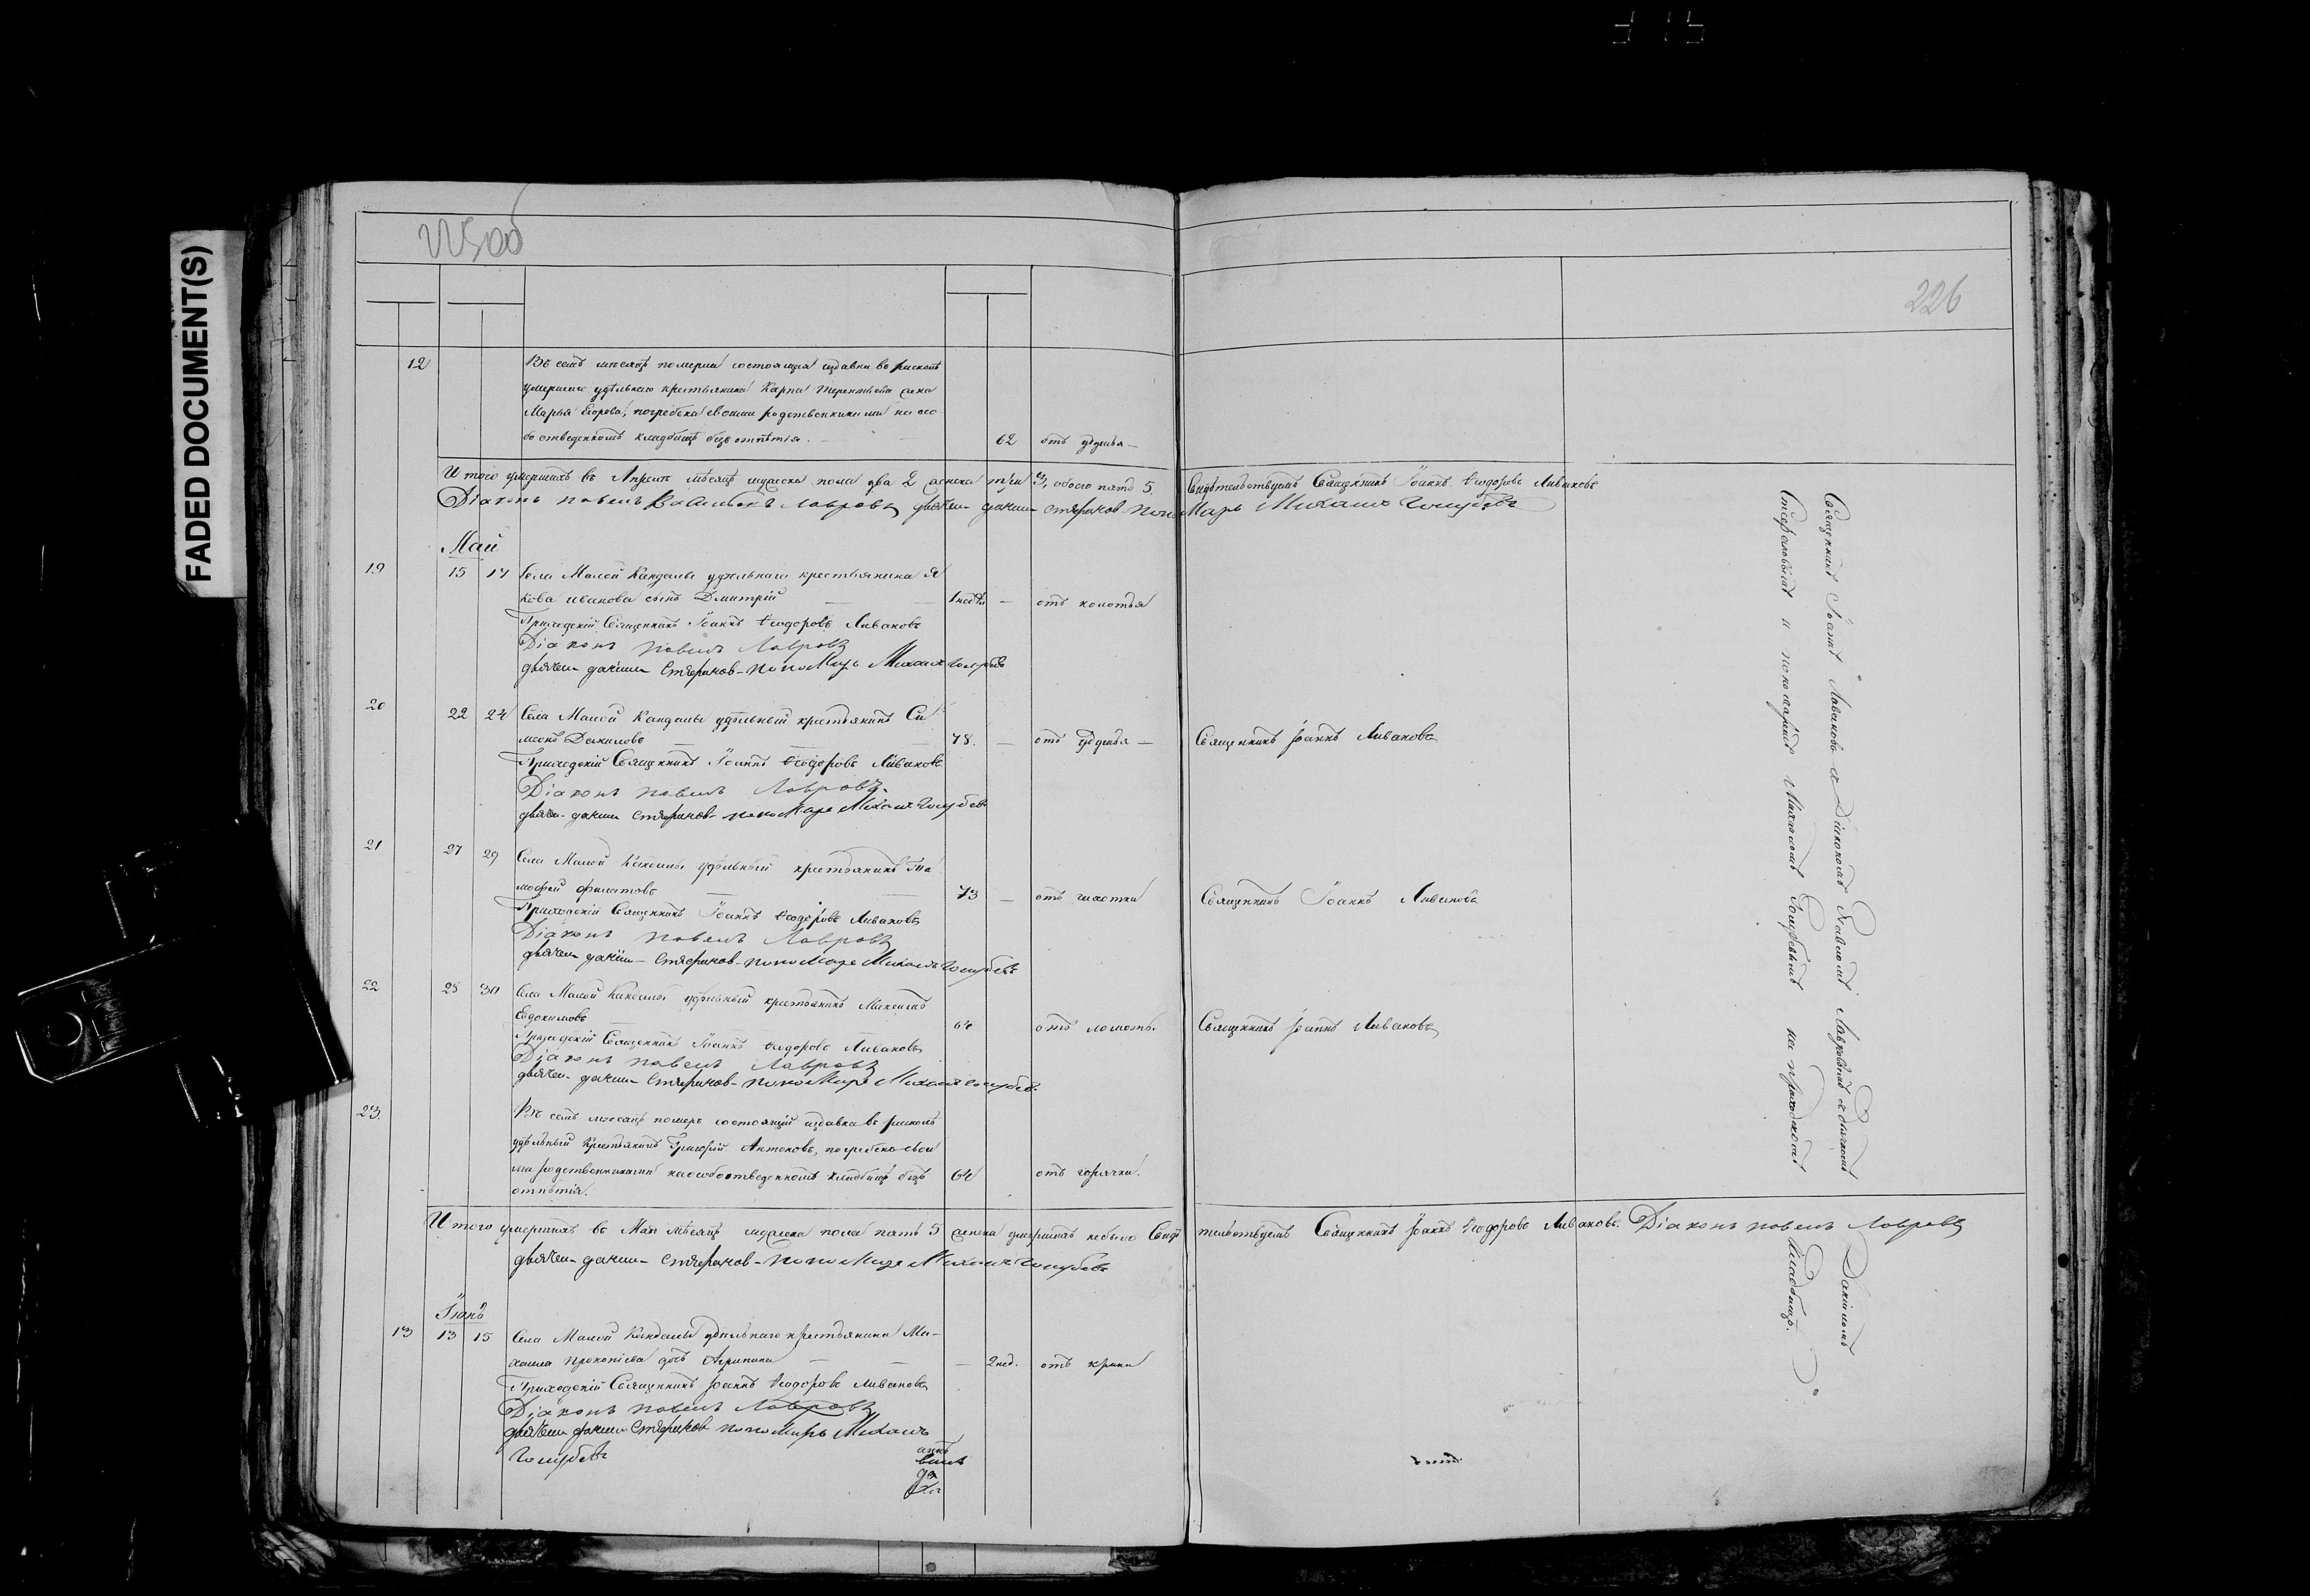 225 об
226
FADED DOCUMENT(S)
12
Въ семъ мѣсяцѣ померла состоящая издавна въ расколѣ
умершаго удѣльнаго крестьянина Карпа Терентьева жена
Марья Егорова, погребена своими родственниками на осо
бо отведенномъ кладбищѣ безъ отпѣтія. — 62 отъ удушья —
Итого умершихъ въ Апрелѣ мѣсяцѣ мужеска пола два 2 женска три 3, обоего пять 5. Свидѣтельствуемъ Священникъ Іоаннъ Ѳеодоровъ Ливановъ
Діаконъ Павелъ Лавровъ дьячекъ Стефановъ Пономарь Михаилъ Голубевъ
Май
19 15 17 Села Малой Кандалы удѣльнаго крестьянина Я
кова Иванова сынъ Дмитрій — 1 недѣл. — отъ колотья
Приходскій Священникъ Іоаннъ Ѳеодоровъ Ливановъ
Діаконъ Павелъ Лавровъ
дьячекъ Стефановъ Пономарь Михаилъ Голубевъ
20 22 24 Села Малой Кандалы удѣльный крестьянинъ Си
меонъ Даниловъ — 78. — отъ удушья — Священникъ Іоаннъ Ливановъ
Приходскій Священникъ Іоаннъ Ѳеодоровъ Ливановъ
Діаконъ Павелъ Лавровъ.
дьячекъ Стефановъ Пономарь Михаилъ Голубевъ
21 27 29 Села Малой Кандалы удѣльный крестьянинъ Ти
мофей Филатовъ — 73 — отъ чахотки Священникъ Іоаннъ Ливановъ
Приходскій Священникъ Іоаннъ Ѳеодоровъ Ливановъ
Діаконъ Павелъ Лавровъ
дьячекъ Стефановъ Пономарь Михаилъ Голубевъ
22 28 30 Села Малой Кандалы удѣльный крестьянинъ Максимъ
Евдокимовъ 64 отъ ломоты. Священникъ Іоаннъ Ливановъ
Приходскій Священникъ Іоаннъ Ѳеодоровъ Ливановъ
Діаконъ Павелъ Лавровъ
дьячекъ Стефановъ Пономарь Михаилъ Голубевъ
23. Въ семъ мѣсяцѣ померъ состоящій издавна въ расколѣ
удѣльный крестьянинъ Григорій Антоновъ, погребенъ свои
ми родственниками на особо отведенномъ кладбищѣ безъ 64 отъ горячки.
отпѣтія.
Итого умершихъ въ Маѣ мѣсяцѣ мужеска пола пять 5 женска умершихъ небыло Свидѣтельствуемъ Священникъ Іоаннъ Ѳеодоровъ Ливановъ. Діаконъ Павелъ Лавровъ
дьячекъ Стефановъ Пономарь Михаилъ Голубевъ
Іюнь
13 13 15 Села Малой Кандалы удѣльнаго крестьянина Ми-
хаила Прокопіева дочь Агрипина — — — 2 нед. отъ крика
Приходскій Священникъ Іоаннъ Ѳеодоровъ Ливановъ
Діаконъ Павелъ Лавровъ
дьячекъ Стефановъ Пономарь Михаилъ
Голубевъ
Священникъ Іоаннъ Ливановъ съ Діакономъ Павломъ Лавровымъ и дьячкомъ
Стефановымъ и пономаремъ Михаиломъ Голубевымъ на приходскомъ кладбищѣ.